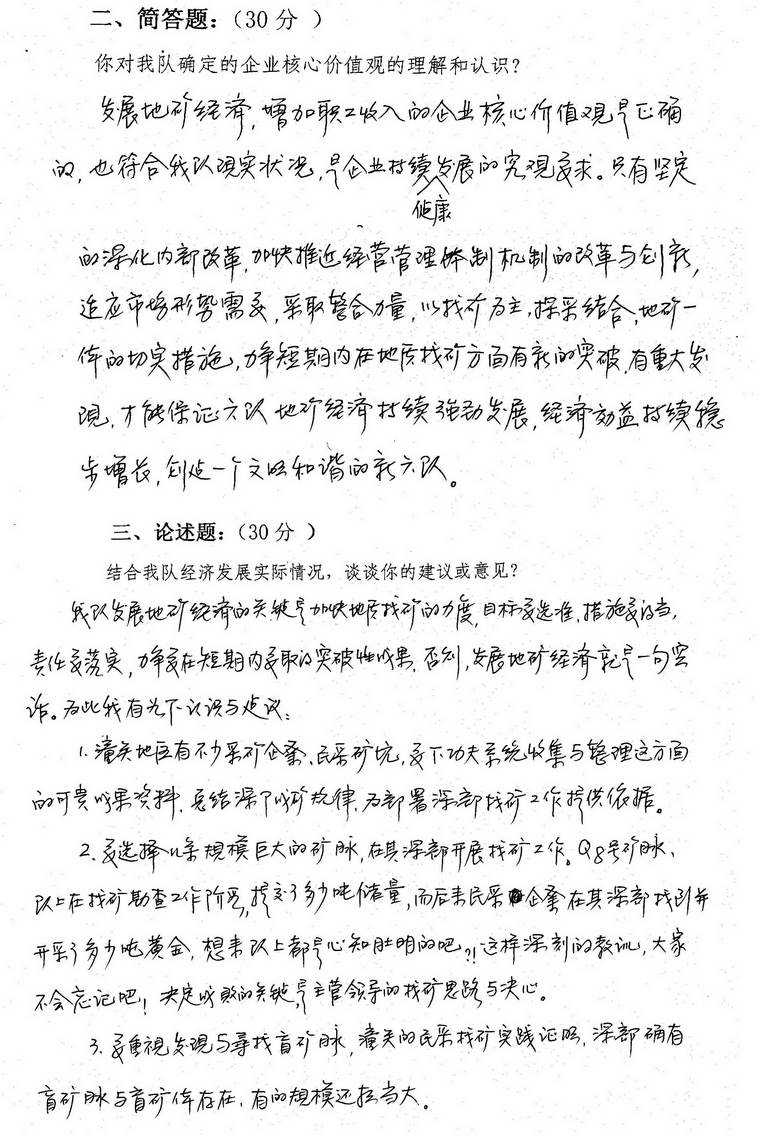 二、简答题：（30分 ）
你对我队确定的企业核心价值观的理解和认识？
发展地矿经济，增加职工收入的企业核心价值观是正确
的，也符合我队现实状况，是企业持续发展的客观要求。只有坚定
健康
的深化内部改革，加快推进经营管理体制机制的改革与创新，
适应市场形势需要，采取整合力量，以找矿为主，探采结合，地矿一
体的切实措施，力争短期内在地质找矿方面有新的突破，有重大发
现，才能保证六队地矿经济持续强劲发展，经济效益持续稳
步增长，创建一个文明和谐的新六队。
三、论述题：（30分 ）
结合我队经济发展实际情况，谈谈你的建议或意见？
我队发展地矿经济的关键是加快地质找矿的力度，目标要选准，措施要得当，
责任要落实，力争要在短期内要取得突破性成果，否则，发展地矿经济就是一句空
话。为此我有以下认识与建议：
1. 潼关地区有不少采矿企业、民采矿坑，要下功夫系统收集与整理这方面
的可贵成果资料，总结深下成矿规律，为部署深部找矿工作提供依据。
2. 要选择几条规模巨大的矿脉，在其深部开展找矿工作。Q8号矿脉、
以上在找矿勘查工作阶段，提交了多少吨储量，而后来民采企业在其深部找到并
开采了多少吨黄金，想来以上都是心知肚明的吧？！这样深刻的教训，大家
不会忘记吧！决定成败的关键是主管领导的找矿思路与决心。
3. 要重视发现与寻找盲矿脉，潼关的民采找矿实践证明，深部确有
盲矿脉与盲矿体存在，有的规模还挺当大。